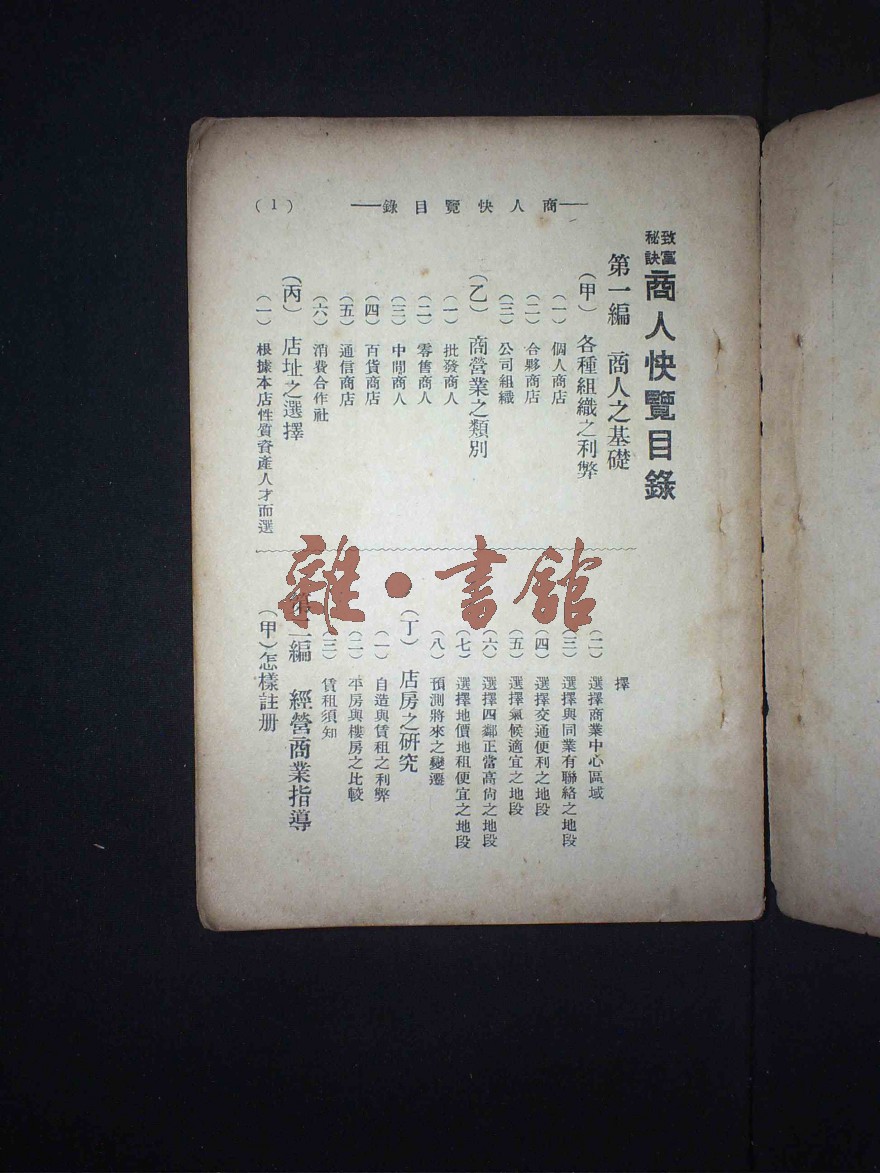 ——商人快覽目錄——
(1)
致富
秘訣
商人快覽目錄
第一編 商人之基礎
(甲) 各種組織之利弊
(一) 個人商店
(二) 合夥商店
(三) 公司組織
(乙) 商營業之類別
(一) 批發商人
(二) 零售商人
(三) 中間商人
(四) 百貨商店
(五) 通信商店
(六) 消費合作社
(丙) 店址之選擇
(一) 根據本店性質資產人才而選
擇
(二) 選擇商業中心區域
(三) 選擇與同業有聯絡之地段
(四) 選擇交通便利之地段
(五) 選擇氣候適宜之地段
(六) 選擇四鄰正當高尙之地段
(七) 選擇地價地租便宜之地段
(八) 預測將來之變遷
(丁) 店房之研究
(一) 自造與賃租之利弊
(二) 平房與樓房之比較
(三) 賃租須知
第二編 經營商業指導
(甲) 怎樣註册
雜·書館